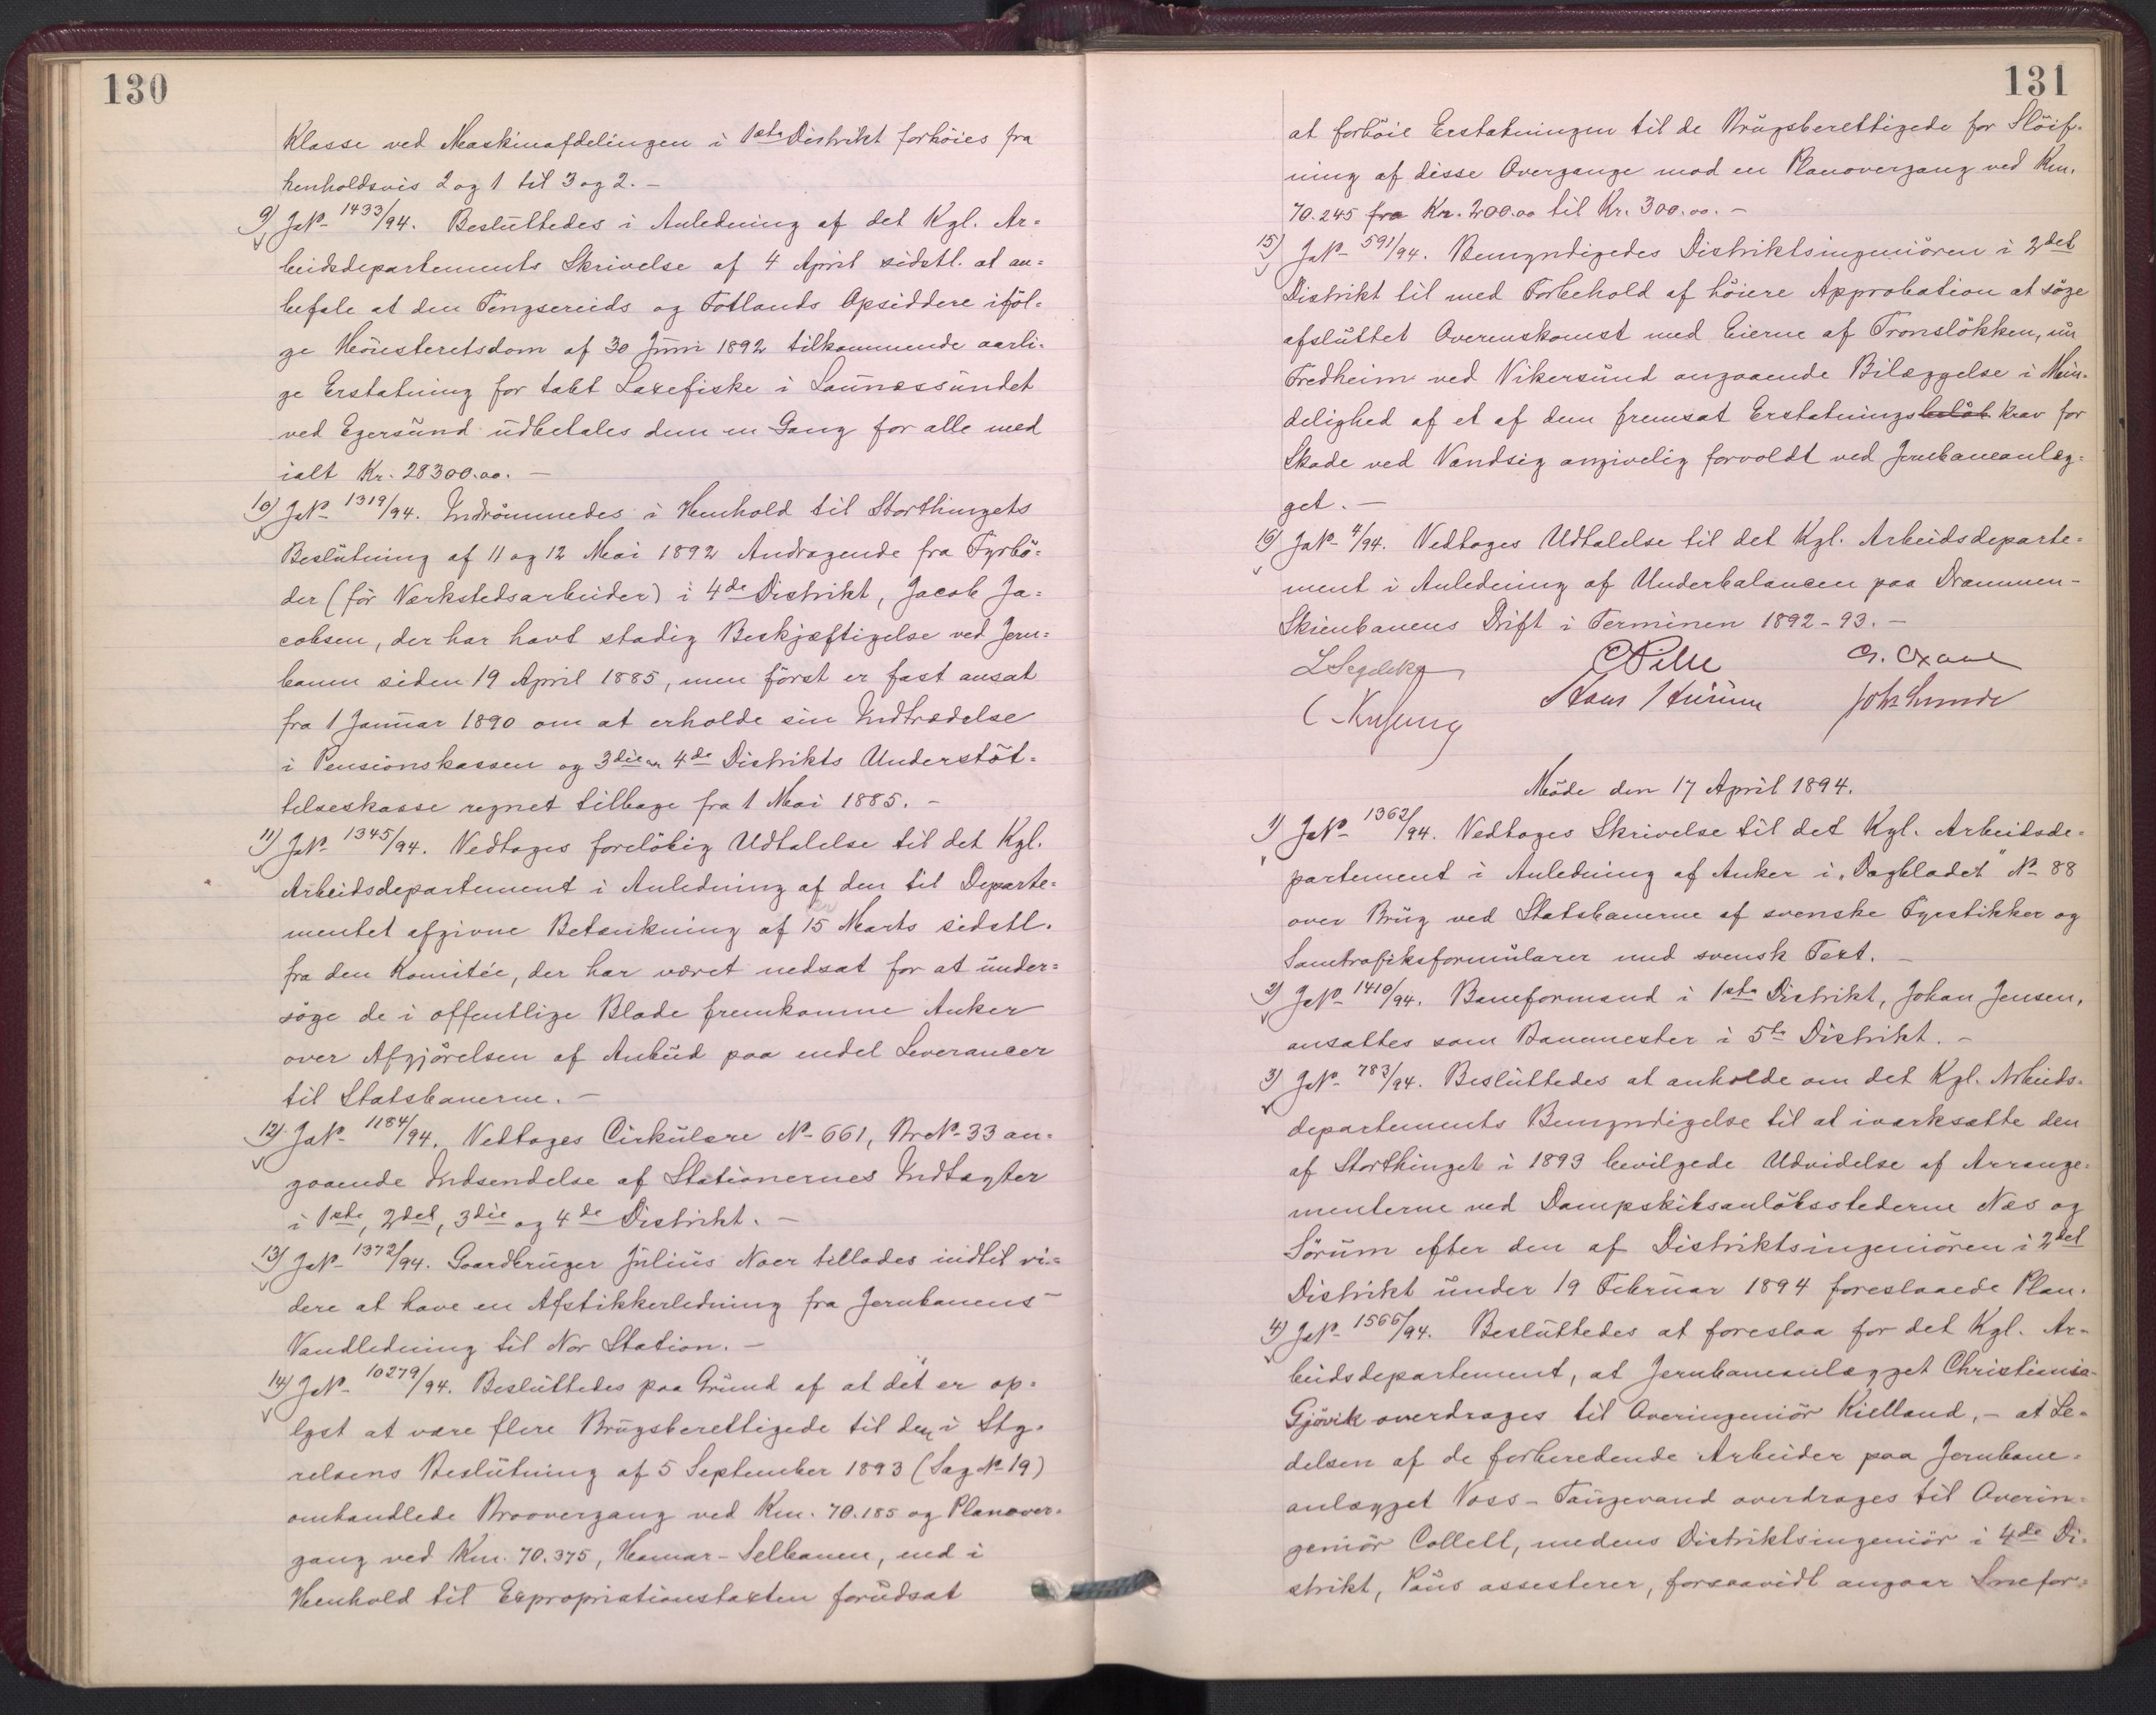 130
Klasse ved Maskinafdelingen i 1ste Distrikt forhöies fra
henholdsvis 2 og 1 til 3 og 2. –
9) JNº 1433/94. Besluttedes i Anledning af det Kgl. Ar=
beidsdepartements Skrivelse af 4 April sidstl. at an=
befale at den Tengsereids og Fotlands Opsiddere iföl=
ge Höiesteretsdom af 30 Juni 1892 tilkommende aarli=
ge Erstatning for tabt Laxefiske i Launæssundet
ved Egersund udbetales dem en Gang for alle med
ialt Kr. 28300.00. –
10) JNº 1319/94. Indrömmedes i Henhold til Storthingets
Beslutning af 11 og 12 Mai 1892 Andragende fra Fyrbö=
der (för Værkstedsarbeider) i 4de Distrikt, Jacob Ja=
cobsen, der har havt stadig Beskjæftigelse ved Jern=
banen siden 19 April 1885, men först er fast ansat
fra 1 Januar 1890 om at erholde sin Indtrædelse
i Pensionskassen og 3die og 4de Distrikts Understöt=
telseskasse regnet tilbage fra 1 Mai 1885. –
11) JNº 1345/94. Vedtoges forelöbig Udtalelse til det Kgl.
Arbeidsdepartement i Anledning af den til Departe=
mentet afgivne Betænkning af 15 Marts sidstl.
fra den Komitée, der har været nedsat for at under=
söge de i offentlige Blade fremkomne Anker
over Afgjörelsen af Anbud paa endel Leverancer
til Statsbanerne. –
12) JNº 1184/94. Vedtoges Cirkulære Nº 661, Br Nº 33 an=
gaaende Indsendelse af Stationernes Indtægter
i 1ste, 2det, 3die og 4de Distrikt. –
13) JNº 1372/94. Gaardbruger Julius Noer tillodes indtil vi=
dere at have en Afstikkerledning fra Jernbanens
Vandledning til Nor Station. –
14) JNº 10279/94. Besluttedes paa Grund af at det er op=
lyst at være flere Brugsberettigede til den i Sty=
relsens Beslutning af 5 September 1893 (Sag Nº 19)
omhandlede Broovergang ved Km. 70.185 og Planover=
gang ved Km. 70.375, Hamar-Selbanen, end i
Henhold til Expropriationstaxten forudsat
131
at forhöie Erstatningen til de Brugsberettigede for Slöif=
ning af disse Overgange mod en Planovergang ved Km.
70.245 fra Kr. 200.00 til Kr. 300.00. –
15) JNº 591/94. Bemyndigedes Distriktsingeniören i 2det
Distrikt til med Forbehold af höiere Approbation at söge
afsluttet Overenskomst med Eierne af Tronslökken, nu
Fredheim ved Vikersund angaaende Bilæggelse i Min=
delighed af et af dem fremsat Erstatningsbelöb krav for
Skade ved Vandsig angivelig forvoldt ved Jernbaneanlæg=
get. –
16) JNº 4/94. Vedtoges Udtalelse til det Kgl. Arbeidsdeparte=
ment i Anledning af Underbalancen paa Drammen-
Skienbanens Drift i Terminen 1892-93. –
L Segelcke C Pihl
Joh. Lunde
Möde den 17 April 1894.
1) JNº 1362/94. Vedtoges Skrivelse til det Kgl. Arbeidsde=
partement i Anledning af Anker i „Dagbladet" Nº 88
over Brug ved Statsbanerne af svenske Fyrstikker og
Samtrafiksformularer med svensk Text. –
2) JNº 1410/94. Baneformand i 1ste Distrikt, Johan Jensen,
ansattes som Banemester i 5te Distrikt. –
3) JNº 783/94. Besluttedes at anholde om det Kgl. Arbeids=
departements Bemyndigelse til at iværksætte den
af Storthinget i 1893 bevilgede Udvidelse af Arrange=
menterne ved Dampskibsanlöbsstederne Næs og
Sörum efter den af Distriktsingeniören i 2det
Distrikt under 19 Februar 1894 foreslaaede Plan.
4) JNº 1566/94. Besluttedes at foreslaa for det Kgl. Ar=
beidsdepartement, at Jernbaneanlægget Christiania-
Gjövik overdrages til Overingeniör Kielland, – at Le=
delsen af de forberedende Arbeider paa Jernbane=
anlægget Voss - Taugevand overdrages til Overin=
geniör Collett, medens Distriktsingeniör i 4de Di=
strikt, Paus assesterer, forsaavidt angaar Snefor=